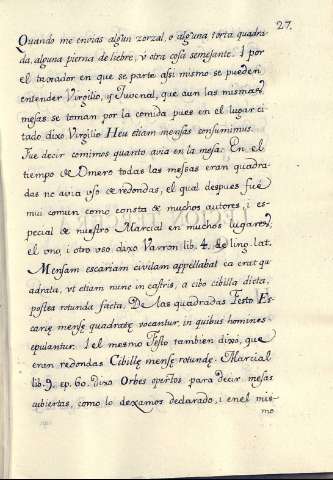 27.
Quando me envias algun zorzal, o alguna torta quadra-
da, alguna pierna de liebre, v otra cosa semejante. I por
el trovador en que se parte asi mismo se pueden
entender Virgilio, y Juvenal, que aun las mismas
mesas se toman por la comida pues en el lugar ci
tado dixo Virgilio Heu etiam mensas consumimus.
Fue decir comimos quanto avia en la mesa. En el
tiempo de Omero todas las mesas eran quadra-
das no avia vso de redondas, el qual despues fué
mui comun como consta de muchos autores, i es-
pecial de nuestro Marcial en muchos lugares,
el vno, i otro vso dixo Varron lib. 4. de ling. lat.
Mensam escariam civilam appellabat ea erat qu
adrata, vt etiam nunc in castris, a cibo cibilla dicta,
postea rotunda facta. De las quadradas Festo Es-
carię mensę quadratę vocantur, in quibus homines
epulantur. I el mesmo Festo tambien dixo, que
eran redondas Cibillę mensę rotundę. Marcial
lib. 9. ep. 60. dixo Orbes opertos para decir mesas
cubiertas, como lo dexamos declarado, i enel mis-
mo